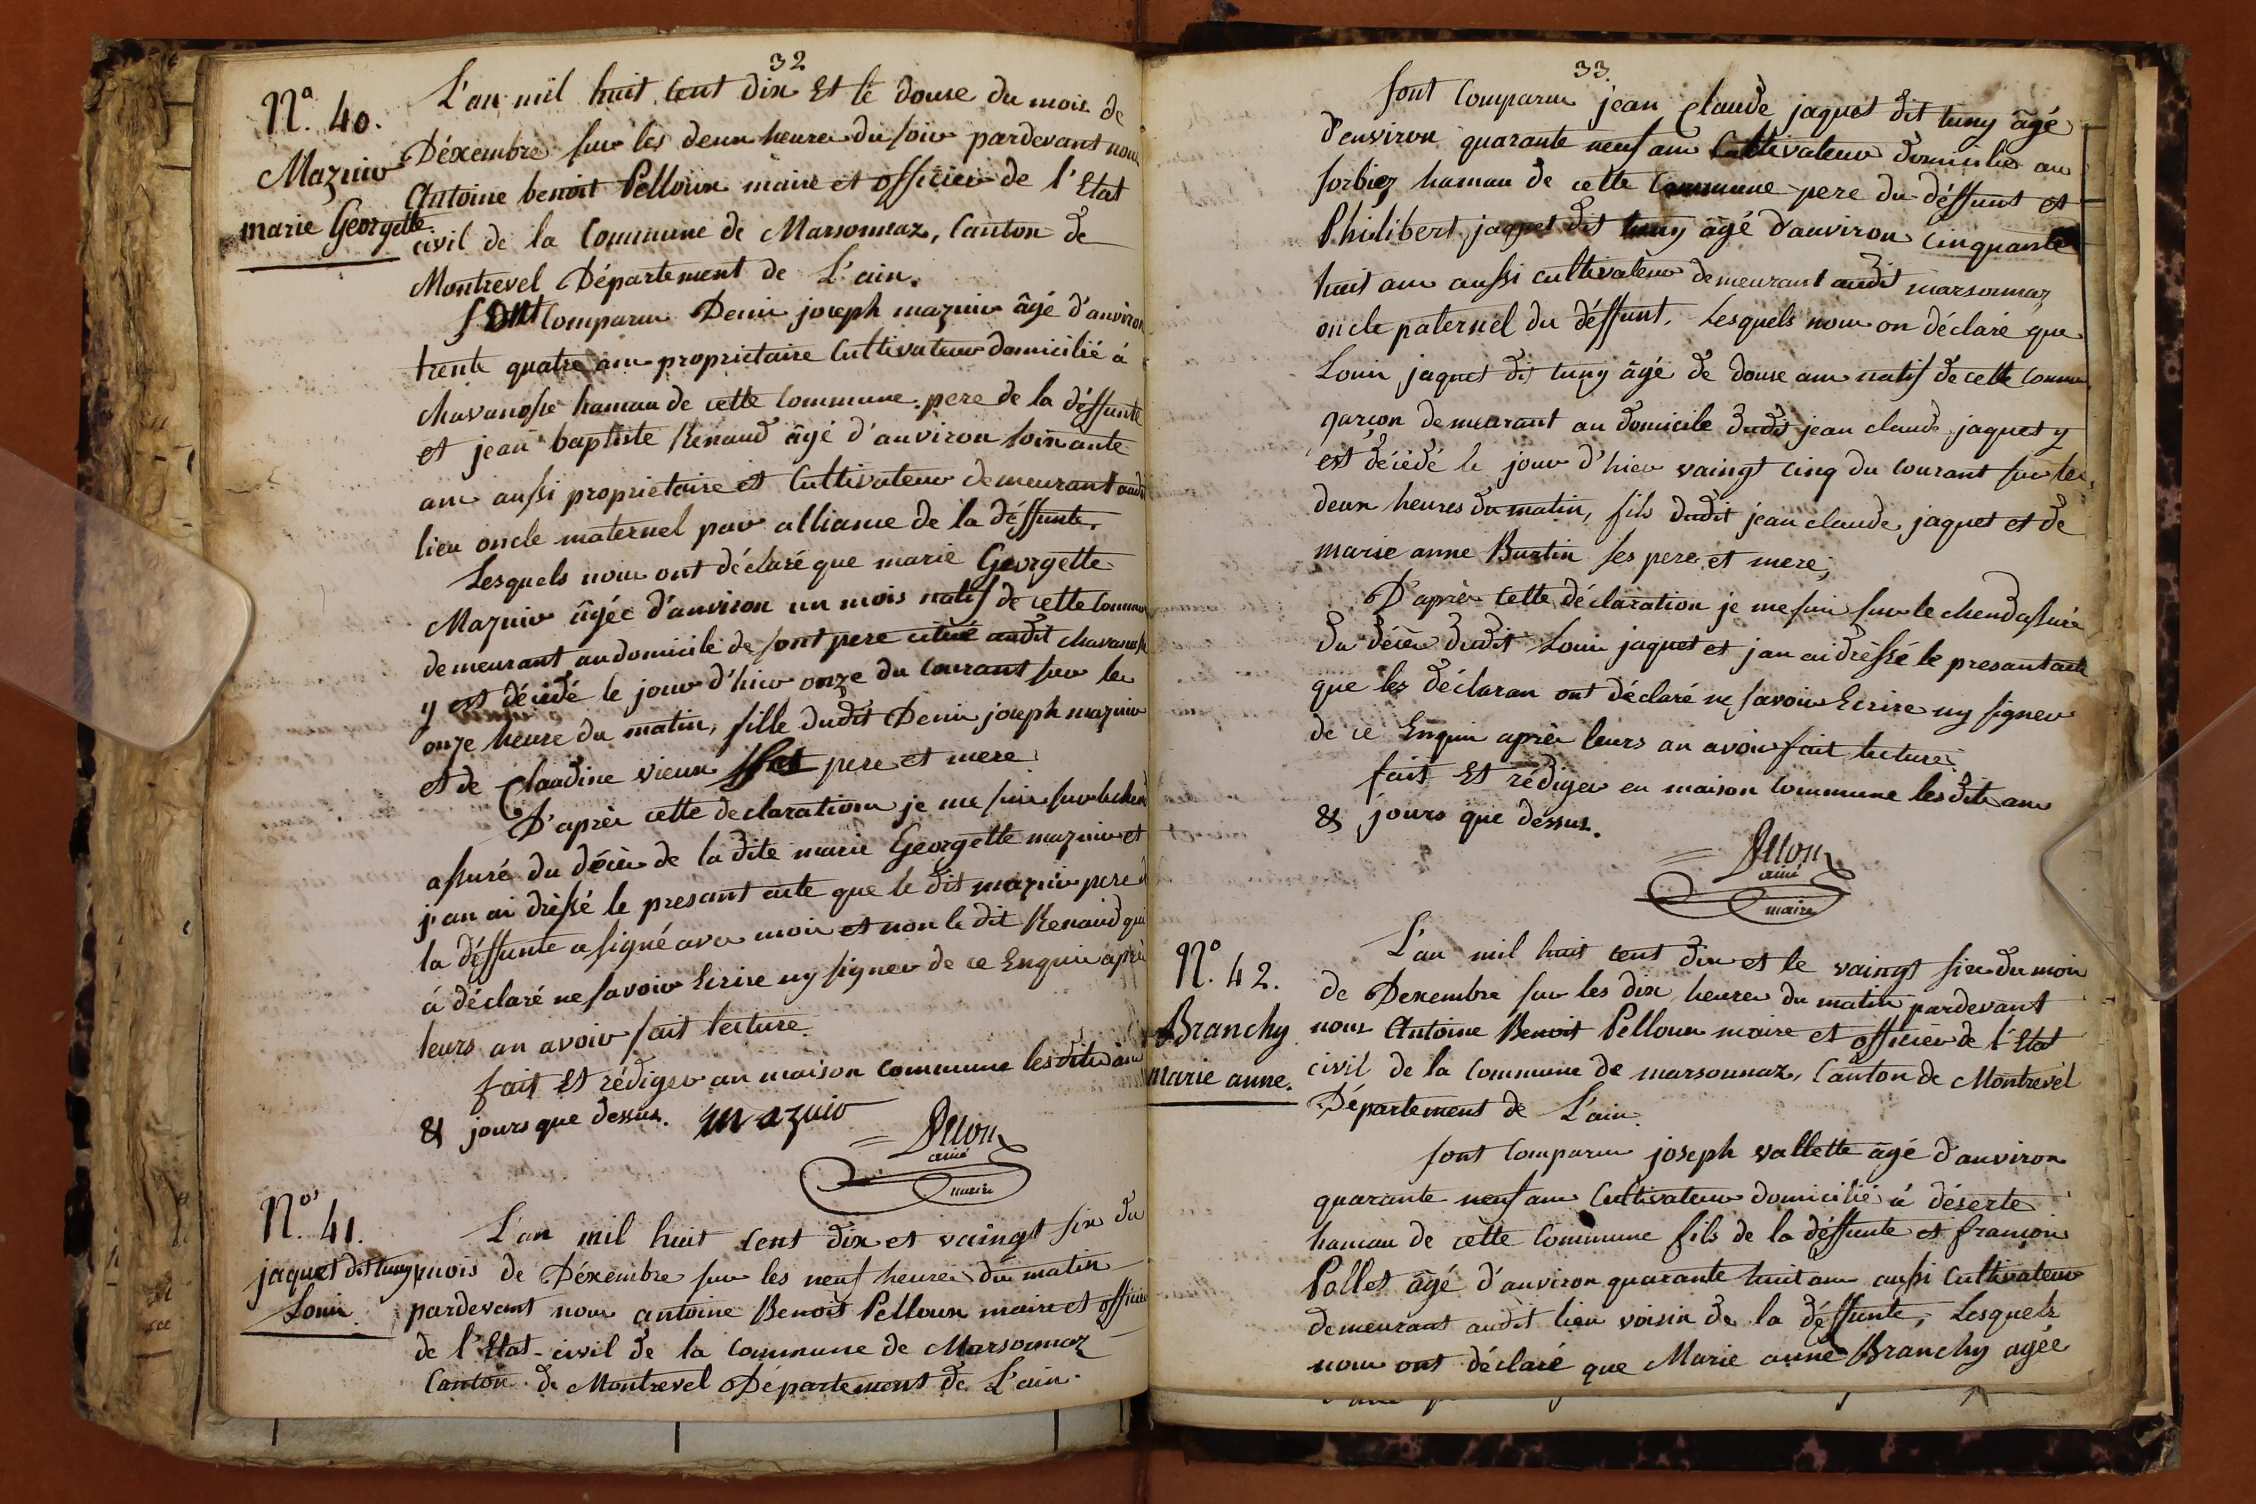 32
N.º 40.
Mazuir
marie Georgette
L'an mil huit cent dix Et le douze du mois de
Déxembre sur les deux heures du soir pardevant nous
Antoine benoit Pelloux maire et officier de l'Etat
civil de la Commune de Marsonnaz, Canton de
Montrevel Département de L'ain.
sont Comparus Denis joseph mazuir âgé d'anviron
trente quatre ans proprietaire Cultivateur domicilié à
chavanosse hamau de cette Commune pere de la déffunte
et jean baptiste Renaud âgé d'anviron soixante
ans aussi proprietaire et Cultivateur demeurant audit
lieu oncle maternel par alliance de la déffunte.
Lesquels nous ont déclaré que marie Georgette
Mazuir âgée d'anviron un mois natif de cette Commune
demeurant au domicile de sont pere situé audit chavanosse
y est décédé le jour d'hier onze du Courant sur les
onze heure du matin, fille dudit Denis joseph mazuir
et de Claudine vieux ses pere et mere
D'aprèr cette declaration je me suis sur le cherd
assuré du décès de la dite marie Georgette mazuir et
j'an ai drèssé le presant acte que le dit mazuir pere d
la déffunte a signé avec moi et non le dit Renaud qui
à déclaré ne savoir Ecrire ny signer de ce Enquis après
leurs an avoir fait lecture.
fait Et rédiger an maison commune lesdits ans
& jours que dessus. mazuir
Pelloux
ainé
maire
N.º 41.
jaquet dit tuny
Louis
L'an mil huit cent dix et vaingt six du
mois de Déxembre sur les neuf heures du matin
pardevant nous antoine Benoit Pelloux maire et officier
de l'Etat-civil de la Commune de Marsonnaz
Canton de Montrevel Département de L'ain.
33.
sont Comparus jean Claude jaquet dit tuny âgé
d'environ quarante neuf ans Cultivateur domicilié au
sorbiez hamau de cette Commune pere du déffunt et
Philibert jaquet dit tuny âgé d'anviron Cinquante
huit ans aussi cultivateur demeurant audit marsonnaz
oncle paternel du déffunt. Lesquels nous on déclaré que
Louis jaquet dit tuny âgé de douze ans natif de cette Commune
garcon demeurant au domicile dudit jean claude jaquet y
est décédé le jour d'hier vaingt cinq du Courant sur les
deux heures du matin, fils dudit jean claude jaquet et de
marie anne Burtin ses pere et mere;
D'après cette déclaration je me suis sur le chend assuré
du décès dudit Louis jaquet et j'an ai drèssé le presant acte
que lez déclaran ont déclaré ne savoir Ecrire ny signer
de ce Enquis après leurs an avoir fait lecture.
fait Et rédiger en maison Commune lesdits ans
& jours que dessus.
Pelloux
ainé
maire
N.º 42.
Branchy
marie anne.
L'an mil huit cent dix et le vaingt six du mois
de Dexembre sur les dix heures du matin pardevant
nous Antoine Benoit Pelloux maire et officier de l'Etat
civil de la Commune de marsonnaz, Canton de Montrevel
Département de L'ain.
sont Comparus joseph vallette âgé d'anviron
quarante neuf ans Cultivateur domicilié à déserte
hamau de cette Commune fils de la déffunte et francois
Pollet âgé d'anviron quarante huit ans aussi Cultivateur
demeurant audit lieu voisin de la déffunte, Lesquels
nous ont déclaré que Marie anne Branchy agée